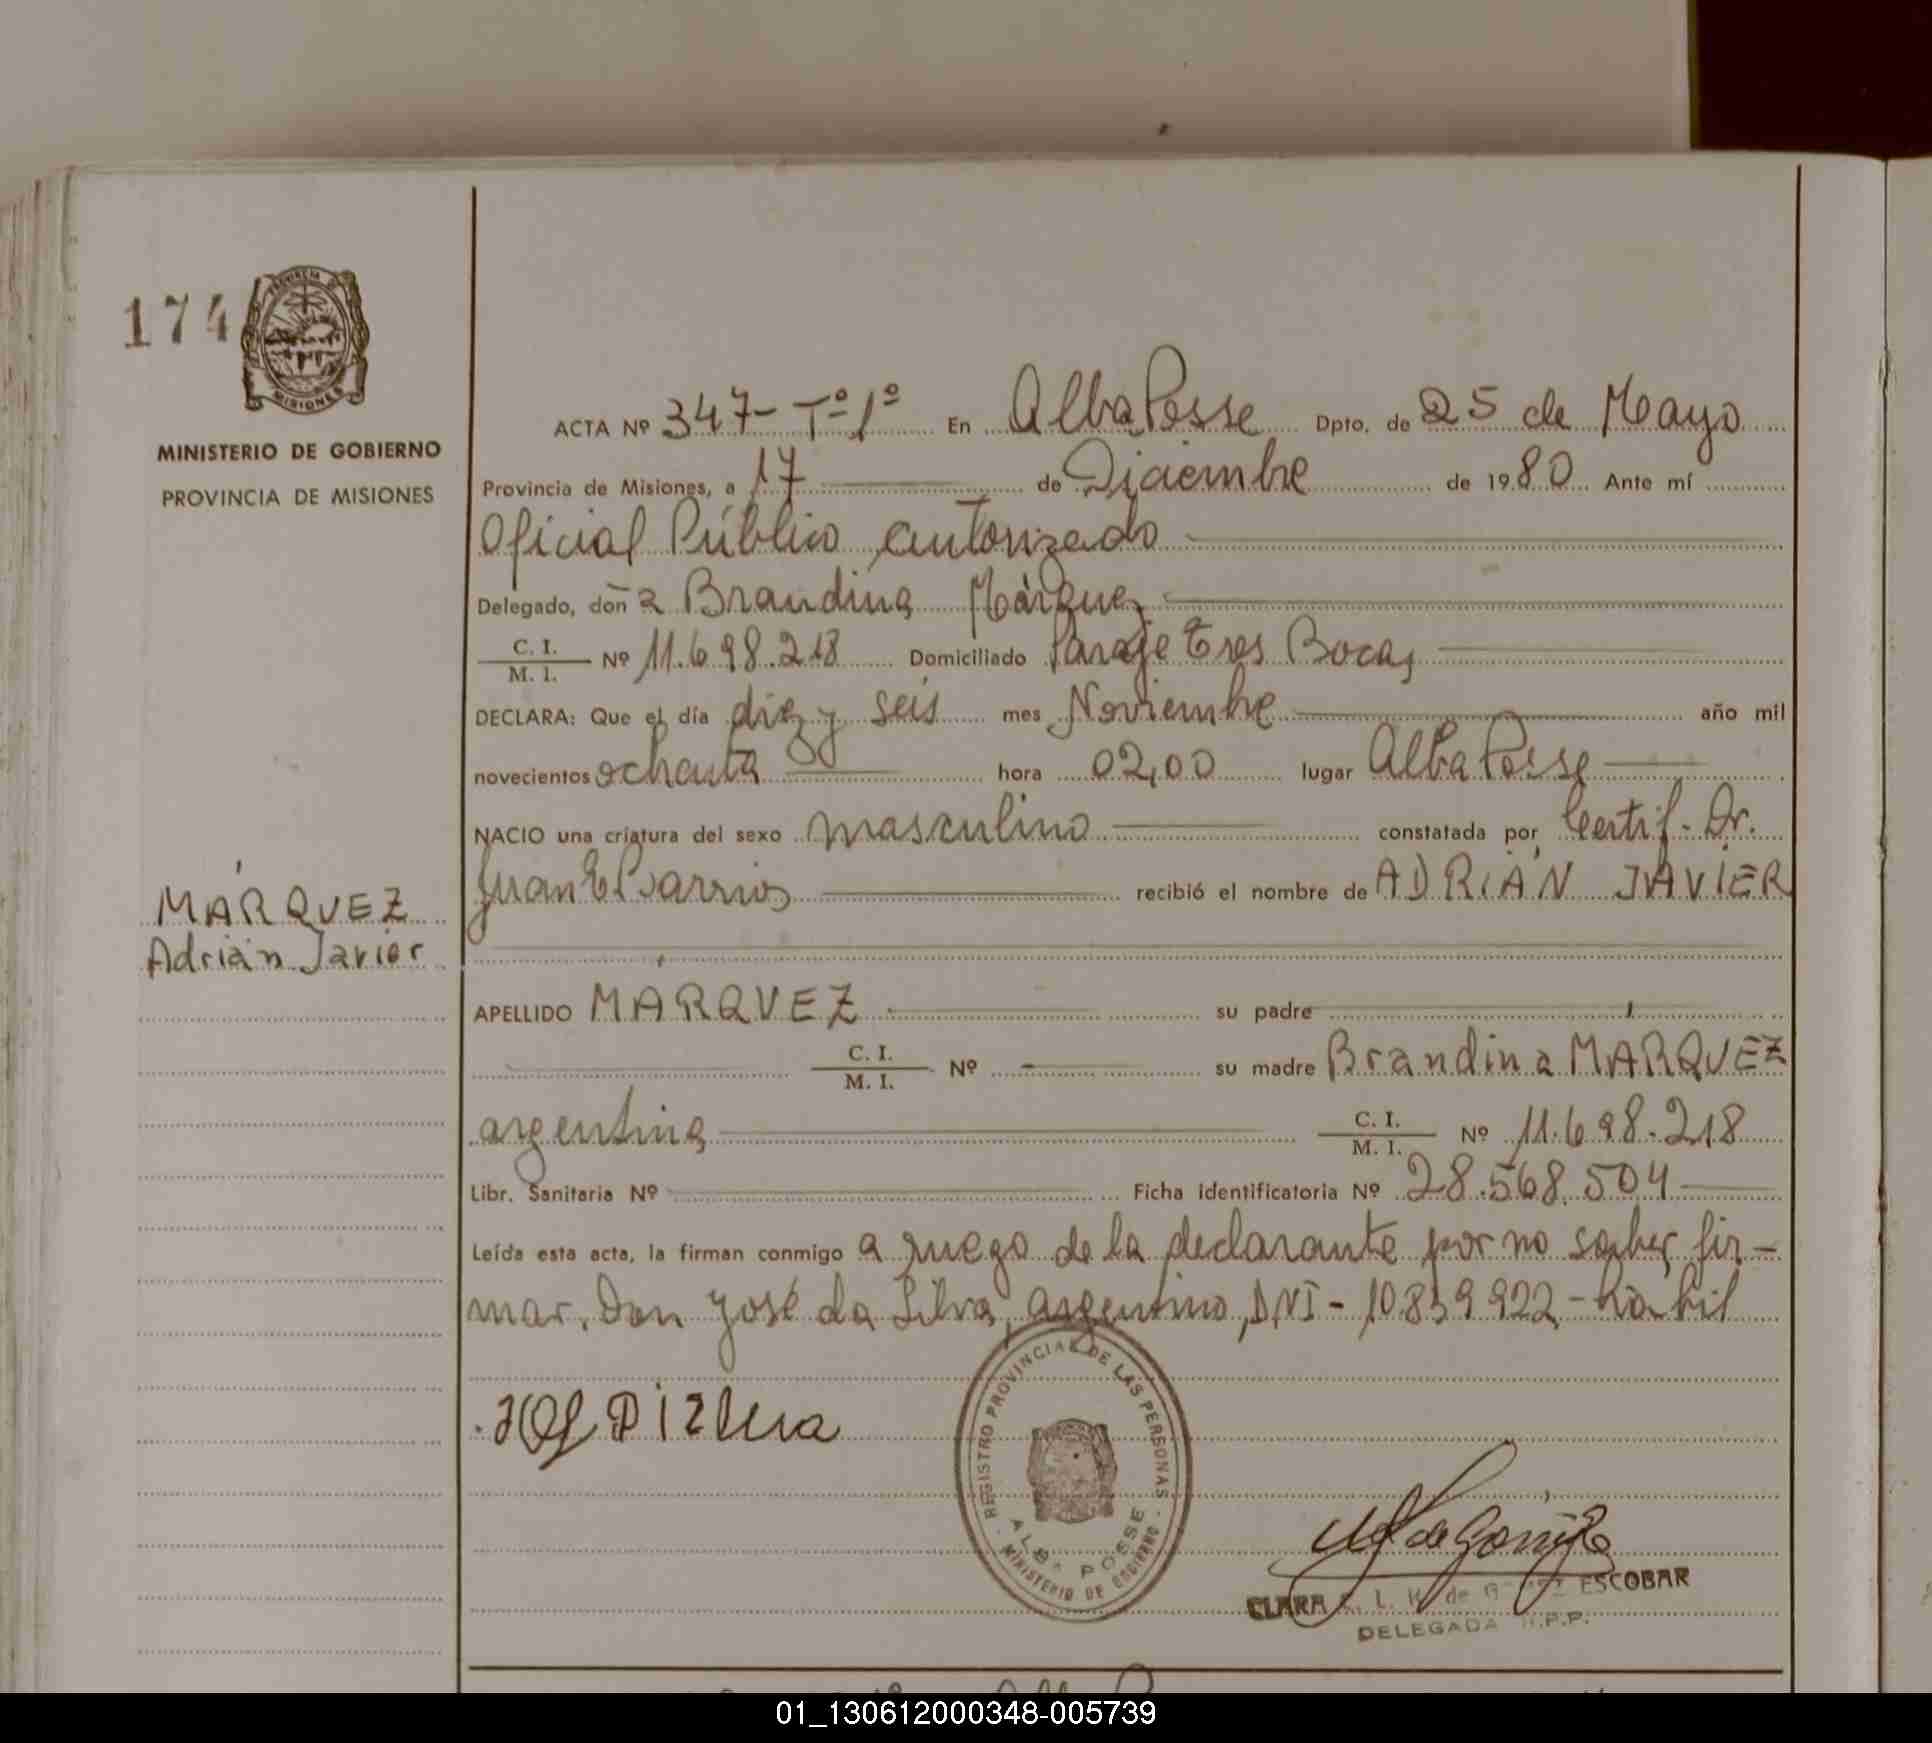 174
PROVINCIA DE
MISIONES
MINISTERIO DE GOBIERNO
PROVINCIA DE MISIONES
ACTA Nº 347- Tº 1º En Alba Posse Dpto. de 25 de Mayo
Provincia de Misiones, a 17 de Diciembre de 1980 Ante mí
Oficial Público autorizado
Delegado, don a Brandina Márquez
C. I.
M. I. Nº 11.698.218 Domiciliado Paraje Tres Bocas
DECLARA: Que el día diez y seis mes Noviembre año mil
novecientos ochenta hora 02,00 lugar Alba Posse
NACIO una criatura del sexo masculino constatada por Certif. Dr.
Juan E. Barrios recibió el nombre de ADRIÁN JAVIER
MÁRQUEZ
Adrián Javier
APELLIDO MARQUEZ su padre
C. I.
M. I. Nº su madre Brandina MARQUEZ
argentina C. I.
M. I. Nº 11.698.218
Libr. Sanitaria Nº Ficha identificatoria Nº 28.568.504
Leída esta acta, la firman conmigo a ruego de la declarante por no saber fir-
mar, Don José da Silva, argentino, DNI- 10.839.922 - hábil
REGISTRO PROVINCIAL DE LAS PERSONAS
ALBA POSSE
MINISTERIO DE GOBIERNO
CLARA L. de ESCOBAR
DELEGADA R.P.P.
01_130612000348-005739